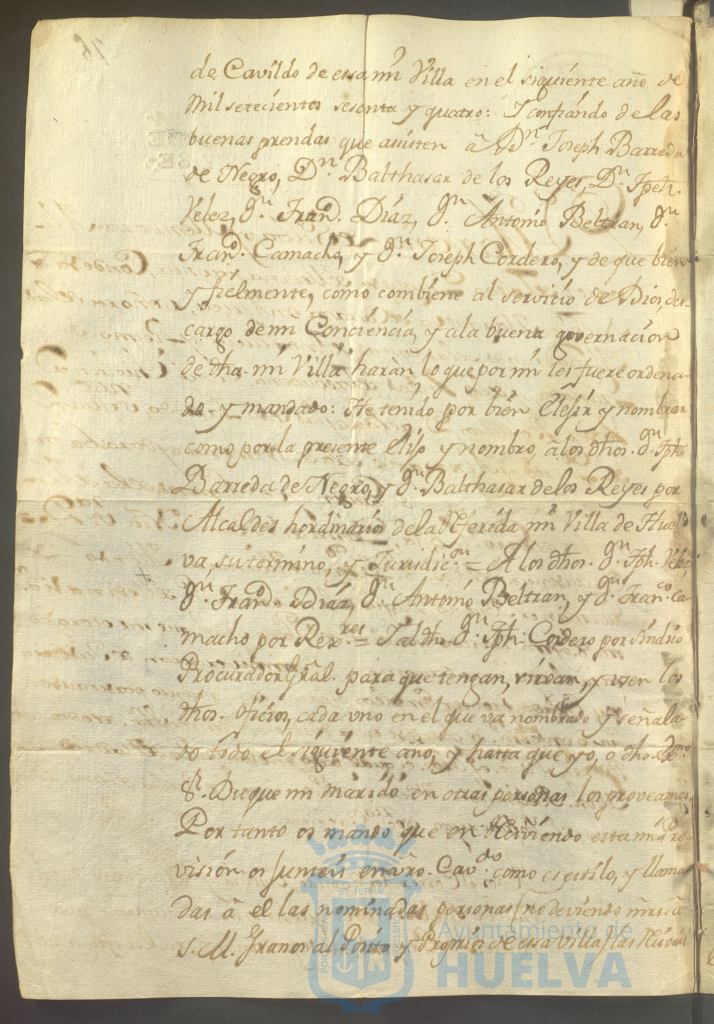 de Cavildo de essa mi Villa en el siguiente año de
Mil setecientos sesenta y quatro: I confiando de las
buenas prendas que asisten â Dn. Joseph Barreda
de Negro, Dn. Balthasar de los Reyes, Dn. Jph.
Velez, Dn. Frando. Díaz, Dn. Antonio Beltran, Dn.
Frando. Camacho, y Dn. Joseph Cordero, y de que bien
y fielmente, como combiene al servicio de Dios, des-
cargo de mi Conciencia, y ala buena governacion
de dha. mi Villa haràn lo que por mi les fuere ordena-
do y mandado: He tenido por bien Elejir y nombrar
como por la presente elijo y nombro, â los dhos. Dn. Jph.
Barreda de Negro, y Dn. Balthasar de los Reyes por
Alcaldes hordinarios de la Referida mi Villa de Huel-
va, su termino, y Jurisdic.on = A los dhos. Dn. Jph. Velez,
Dn. Frando. Díaz, Dn. Antonio Beltran, y Dn. Fran.co Ca-
macho por Rex.res = I al dho. Dn. Jph. Cordero por Sindico
Procurador Gral. para que tengan, sirvan, y usen los
dhos. oficios, cada uno en el que va nombrado y señala-
do todo el siguiente año, y hasta que yo, o dho. Exmo.
Sr. Duque mi marido en otras personas los proveamos.
Por tanto os mando que en Reciviendo esta mi Pro-
visión os junteis en vro. Cav.do como es estilo, y llama-
das â el las nominadas personas (no deviendo mrs. â
S. M. Granos al Posito y Propios de esa Villa) las
Ayuntamiento de
HUELVA